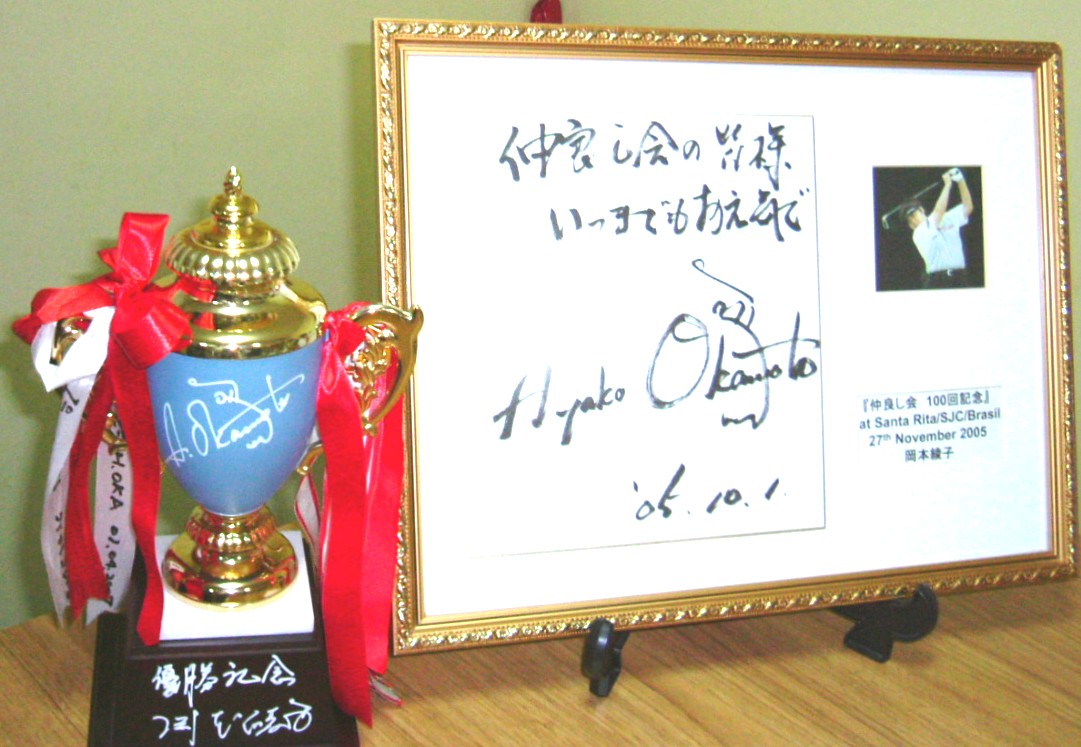 仲良し会の皆様
いつまでもお元気で
Ayako Okamoto
'05.10.1.
『仲良し会 100回記念』
at Santa Rita/SJC/Brasil
27th November 2005
岡本綾子
A. Okamoto
H.OKA
優勝記念